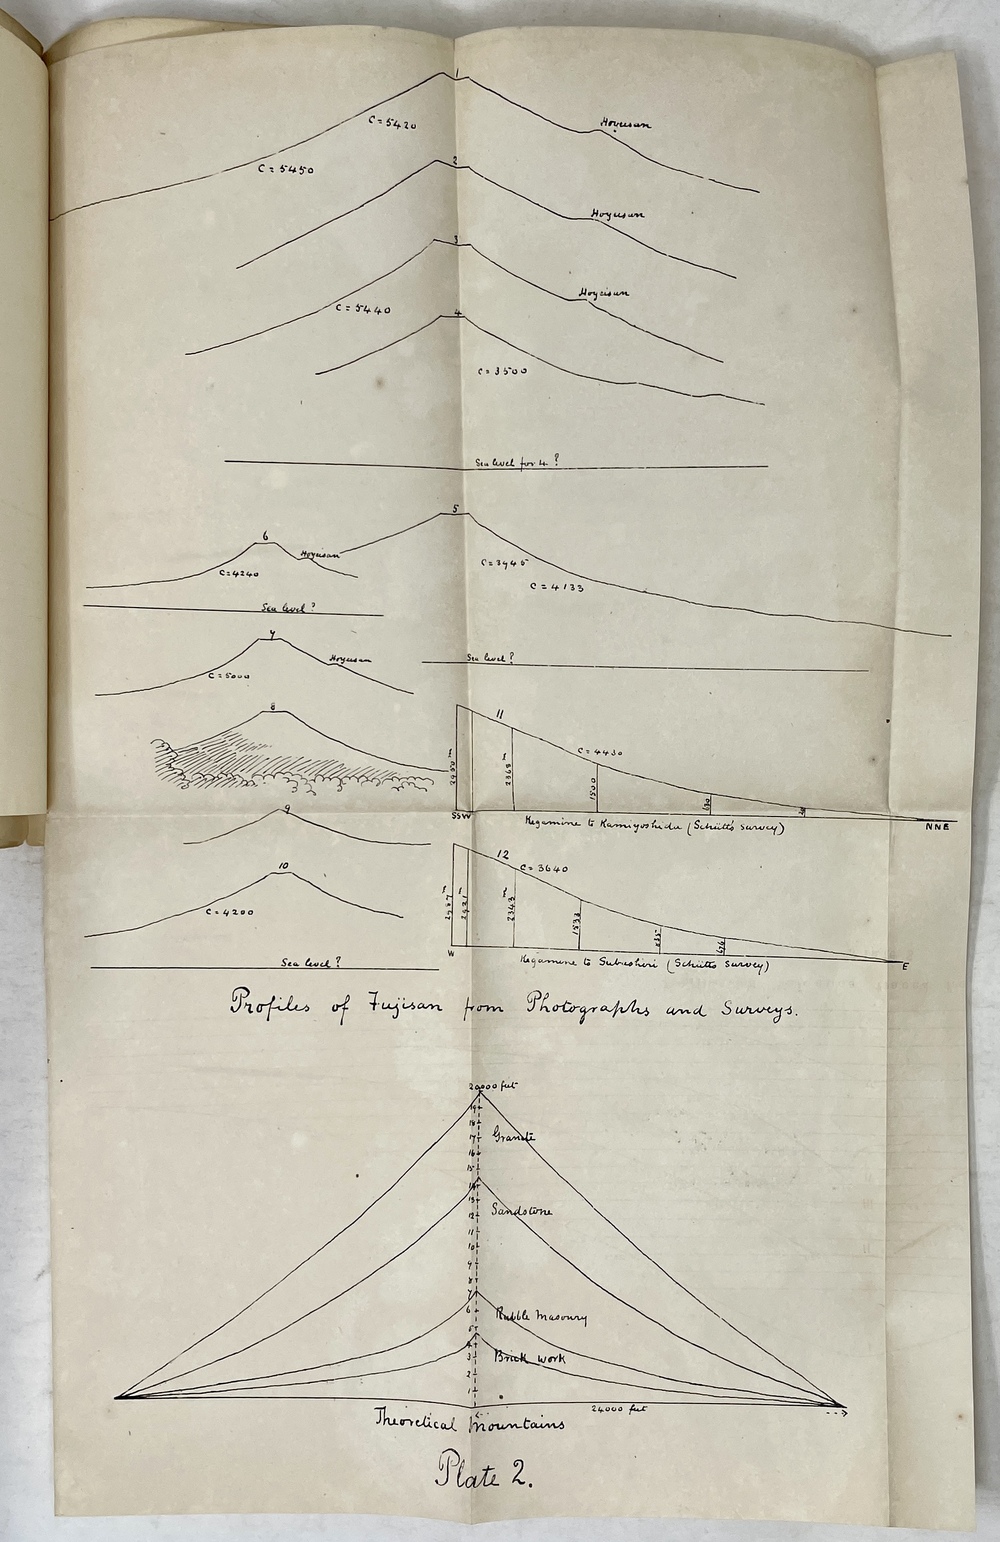 1
Hoyeisan
C = 5420
C = 5450
2
Hoyeisan
3
Hoyeisan
C = 5440
4
C = 3500
Sea level for 4 ?
5
6
Hoyeisan
C = 3945
C = 4240
C = 4133
Sea level ?
7
Hoyeisan
Sea level ?
C = 5000
8
11
C = 4430
2950 m
2368 m
1500
SSW
Kegamine to Kamiyoshida (Schütt's survey)
NNE
9
12
C = 3640
10
2343 m
C = 4200
1533
676
W
Kegamine to Subashiri (Schütt's survey)
E
Sea level ?
Profiles of Fujisan from Photographs and Surveys.
20000 feet
19
18
17
Granite
16
15
14
13
12
Sandstone
11
10
9
8
7
6
Rubble Masonry
5
4
3
Brick work
2
1
24000 feet
Theoretical Mountains
Plate 2.